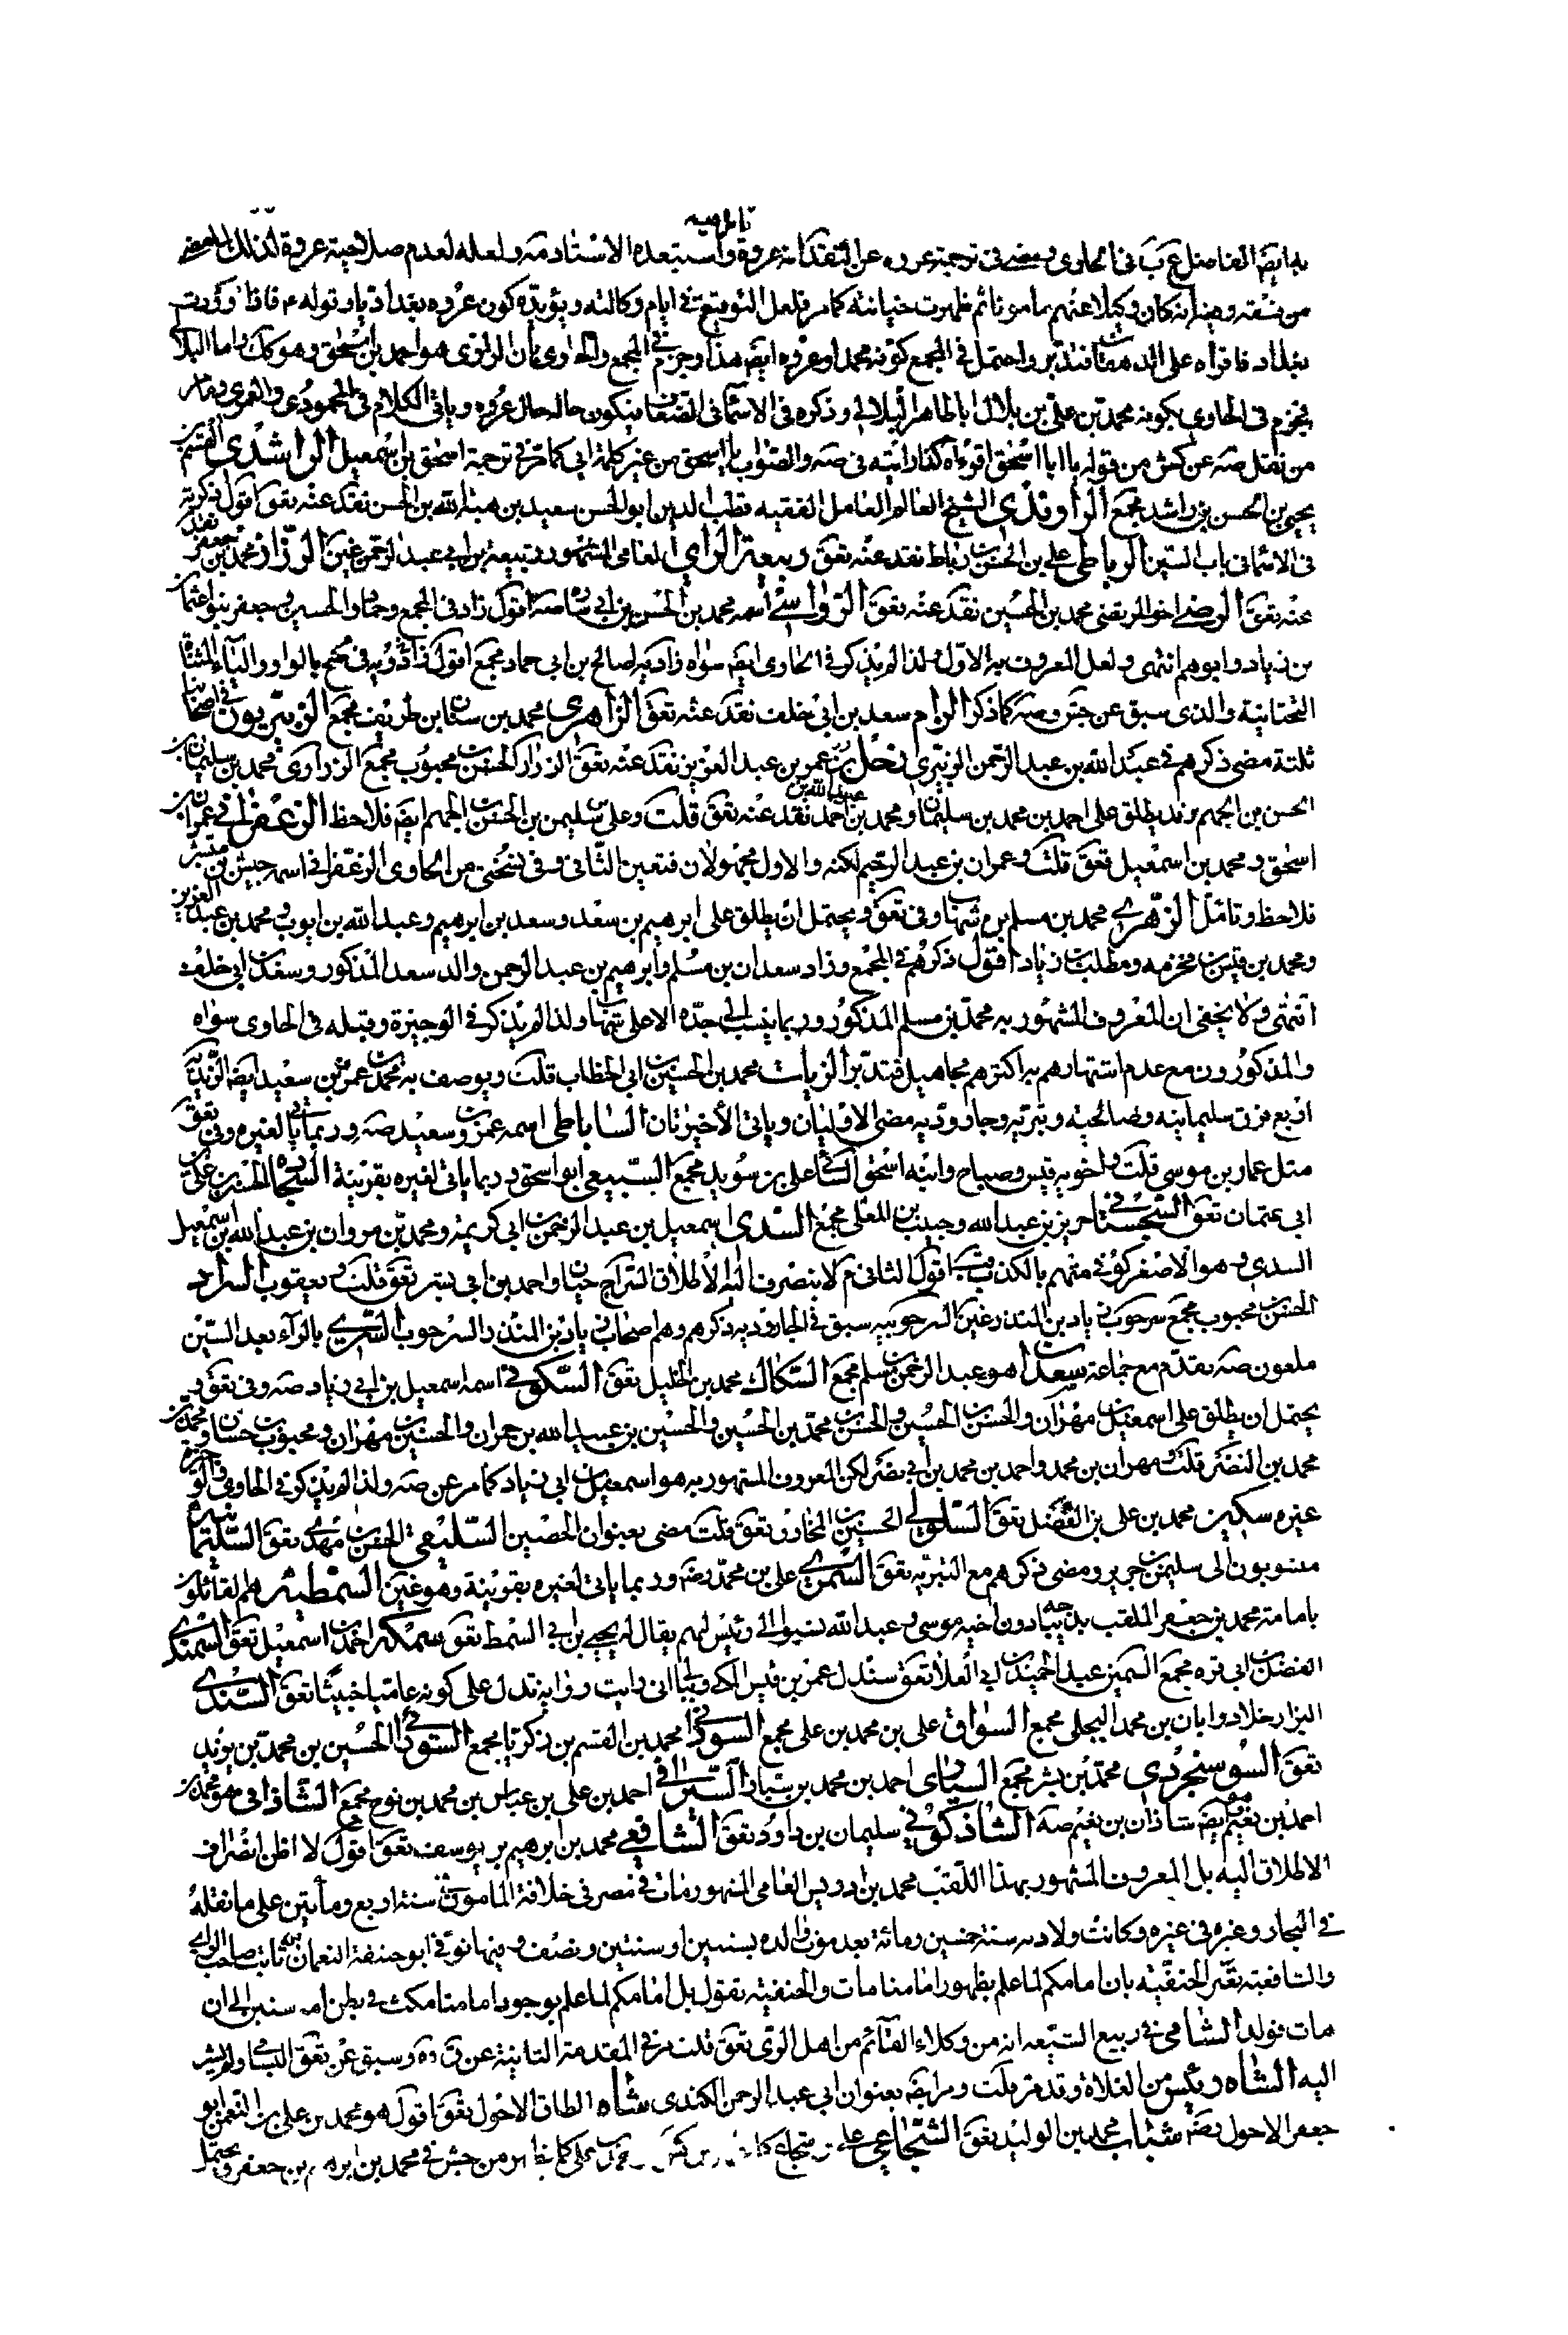 به ايضا الفاضل ع ب فى الحاوى فى ترجمة عروة عن التقدانه عروة واستبعده الاستاد مته ولعله لعدم صلاحية عروة لذلك
من فسقه وحينئذ كان وكيلا عنهم مامونا ثم ظهرت خيانته كما مر فلعل التوقيع فى ايام وكالته ويؤيده كون عروة بغداديا وقوله ع فاذا وردت
بغداد فاقراه على الدهقان فتدبر واحتمل فى المجمع كونه محمدا وعروة ايضا هذا وجزم فى المجمع والحاوى بان الراوى هو احمد بن اسحق وهو كك واما البلالى
فجزم فى الحاوى بكونه محمد بن على بن بلال اباطاهر البلالى وذكره فى الاسماء فى الضعاف فيكون حاله حال عروة وياتى الكلام فى المحمودى والعمرى
من نقل صه عن كش من قوله يا ابا اسحق اقرءاه كذا رايته فى صه والصواب يا اسحق من غير كلمة ابى كما مر فى ترجمة اسحق بن اسمعيل الراشدى القسم بن
يحيى بن الحسن بن راشد مجمع الراوندى الشيخ العالم العامل الفقيه قطب الدين ابو الحسن سعيد بن هبة الله بن الحسن نقد عنه تعق اقول ذكرته
فى الاسماء فى باب السين الرباطى على بن الحسن بن رباط نقد عنه تعق ربيعة الراى العامى المشهور ربيعة بن ابى عبد الرحمن غين الرزاز محمد بن جعفر نقد
عنه تعق الرضى اخو المرتضى محمد بن الحسين نقد عنه تعق الرواسى اسمه محمد بن الحسن بن ابى سارة صه اقول زاد فى المجمع وحماد والحسين وجعفر بنو عثمان
بن زياد وابوهم انتهى ولعل المعروف به الاول ولذا لم يذكر فى الحاوى ايضا سواه زادبه صالح بن ابى حماد مجمع اقول زاذويه فى ضح بالواو والياء المثناة
التحتانية والذى سبق عن جش وصه كما ذكر الزام سعد بن ابى خلف نقد عنه تعق الزاهرى محمد بن سنان ابن طريف مجمع الزبيريون فى اصحابنا
ثلثة مضى ذكرهم فى عبد الله بن عبد الرحمن الزبيرى زحل عمر بن عبد العزيز نقد عنه تعق الزراد الحسن بن محبوب مجمع الزرارى محمد بن سليمان بن
الحسن بن الجهم وقد يطلق على احمد بن محمد بن سليمان ومحمد بن عبيد الله بن احمد نقد عنه تعق قلت وعلى سليمن بن الحسن بن الجهم ايضا فلاحظ الزعفرانى عمران بن
اسحق ومحمد بن اسمعيل تعق قلت وعمران بن عبد الرحيم لكنه والاول مجهولان فتعين الثانى وفى نسختى من الحاوى الزعفرانى اسمه حبيش بن مبشر
فلاحظ وتامل الزهرى محمد بن مسلم بن شهاب وفى تعق ويحتمل ان يطلق على ابرهيم بن سعد وسعد بن ابرهيم وعبد الله بن ايوب ومحمد بن عبد العزيز
ومحمد بن قيس بن مخرمه ومطلب بن زياد اقول ذكرهم فى المجمع وزاد سعدان بن مسلم وابرهيم بن عبد الرحمن والد سعد المذكور وسعد بن ابى خلف
انتهى ولا يخفى ان المعروف المشهور به محمد بن مسلم المذكور وربما ينسب الى جده الاعلى شهاب ولذا لم يذكر فى الوجيزة وقبله فى الحاوى سواه
والمذكورون مع عدم اشتهارهم به اكثرهم مجاهيل فتدبر الزيات محمد بن الحسين بن ابى الخطاب قلت ويوصف به محمد بن عمرو بن سعيد ايضا الزيدية
اربع فرق سليمانية وصالحية وبترية وجارودية مضى الاوليان وياتى الاخيرتان الساباطى اسمه عمرو بن سعيد صه وربما ياتى لغيره وفى تعق
مثل عمار بن موسى قلت واخويه قيس وصباح وابنه اسحق السائى على بن سويد مجمع السبيعى ابو اسحق وربما ياتى لغيره بقرينة السجاده الحسن بن على بن
ابى عثمان تعق السجستانى حريز بن عبد الله وحبيب بن المعلى مجمع السدى اسمعيل بن عبد الرحمن بن ابى كريمة ومحمد بن مروان بن عبد الله بن اسمعيل
السدى وهو الاصغر كوفى متهم بالكذب اقول الثانى م لا ينصرف اليه الاطلاق السراج حيان واحمد بن ابى بشر تعق قلت ويعقوب السراد
الحسن بن محبوب مجمع سرحوب زياد بن المنذر غين السرحوبية سبق فى الجارودية ذكرهم وهم اصحاب زياد بن المنذر السرحوب السرى بالراء بعد السين
ملعون صه تقدم مع جماعة سعدان هو عبد الرحمن بن مسلم مجمع السكاك محمد بن الخليل تعق السكونى اسمه اسمعيل بن ابى زياد صه وفى تعق و
يحتمل ان يطلق على اسمعيل بن مهران والحسن بن الحسين والحسن بن محمد بن الحسين والحسين بن عبيد الله بن حمران والحسين بن مهران ومحبوب بن حسان ومحمد بن
محمد بن النضر قلت ومهران بن محمد واحمد بن محمد بن ابى نصر لكن المعروف المشهور به هو اسمعيل بن ابى زياد كما مر عن صه ولذا لم يذكر فى الحاوى والوجيزة
غيره سكين محمد بن على بن الفضل تعق السلولى الحصين بن المخارق تعق قلت مضى بعنوان الحصين السليعى الحسن بن مهدى تعق السليمانية
منسوبون الى سليمن بن جرير ومضى ذكرهم مع البترية تعق السمرى على بن محمد رضه وربما ياتى لغيره بقرينة وهو غين السمطية هم القائلون
بامامة محمد بن جعفر الملقب بديباجه دون اخيه موسى وعبد الله نسبوا الى رئيس لهم يقال له يحيى بن ابى السمط تعق سمكة احمد بن اسمعيل تعق السمندى
الفضل بن ابى قره مجمع السمين عبد الحميد بن ابى العلا تعق سندل عمر بن قيس المكى وببالى انى رايت رواية تدل على كونه عاميا خبيثا تعق السندى
البزار خلاد وابان بن محمد البجلى مجمع السواق على بن محمد بن على مجمع السودانى محمد بن القسم بن زكريا مجمع السورائى الحسين بن محمد بن يزيد
تعق السوسنجردى محمد بن بشر مجمع السيارى احمد بن محمد بن سيار السيرافى احمد بن على بن عباس بن محمد بن نوح مجمع الشاذانى هو محمد بن
احمد بن نعيم ايضا شاذان بن نعيم صه الشاذكونى سليمان بن داود تعق الشافعى محمد بن ابرهيم بن يوسف تعق اقول لا اظن انصراف
الاطلاق اليه بل المعروف المشهور بهذا اللقب محمد بن ادريس العامى المشهور مات فى مصر فى خلافة المامون سنة اربع ومأتين على ما نقله
فى البحار وغيره فى غيره وكانت ولادته سنة خمسين ومائة بعد موت والده بسنين او سنتين ونصف وفيها توفى ابو حنيفة النعمان بن ثابت صاحب الراى
والشافعية تعير الحنفية بان امامكم لما علم بظهور امامنا مات والحنفية تقول بل امامكم لما علم بوجود امامنا مكث فى بطن امه سنين الى ان
مات فولد الشامى فى ربيع الشيعه انه من وكلاء القائم من اهل الرى تعق قلت مر فى المقدمة الثانية عن وسبق عن تعق البسامى
اليه الشاه رئيس من الغلاة وقد مر قلت ومر ايضا بعنوان ابى عبد الرحمن الكندى شاه الطاق الاحول تعق اقول هو محمد بن على بن النعمن ابو
جعفر الاحول رضه شباب محمد بن الوليد تعق الشجاعى على بن شجاع من جش فى محمد بن ابرهيم بن جعفر ويحتمل